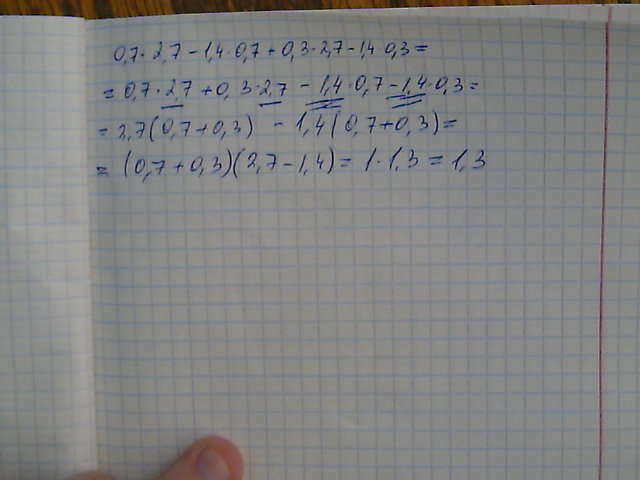 0,7·2,7-1,4·0,7+0,3·2,7-1,4·0,3=
=0,7·2,7+0,3·2,7-1,4·0,7-1,4·0,3=
=2,7(0,7+0,3) - 1,4(0,7+0,3)=
=(0,7+0,3)(2,7-1,4)=1·1,3=1,3